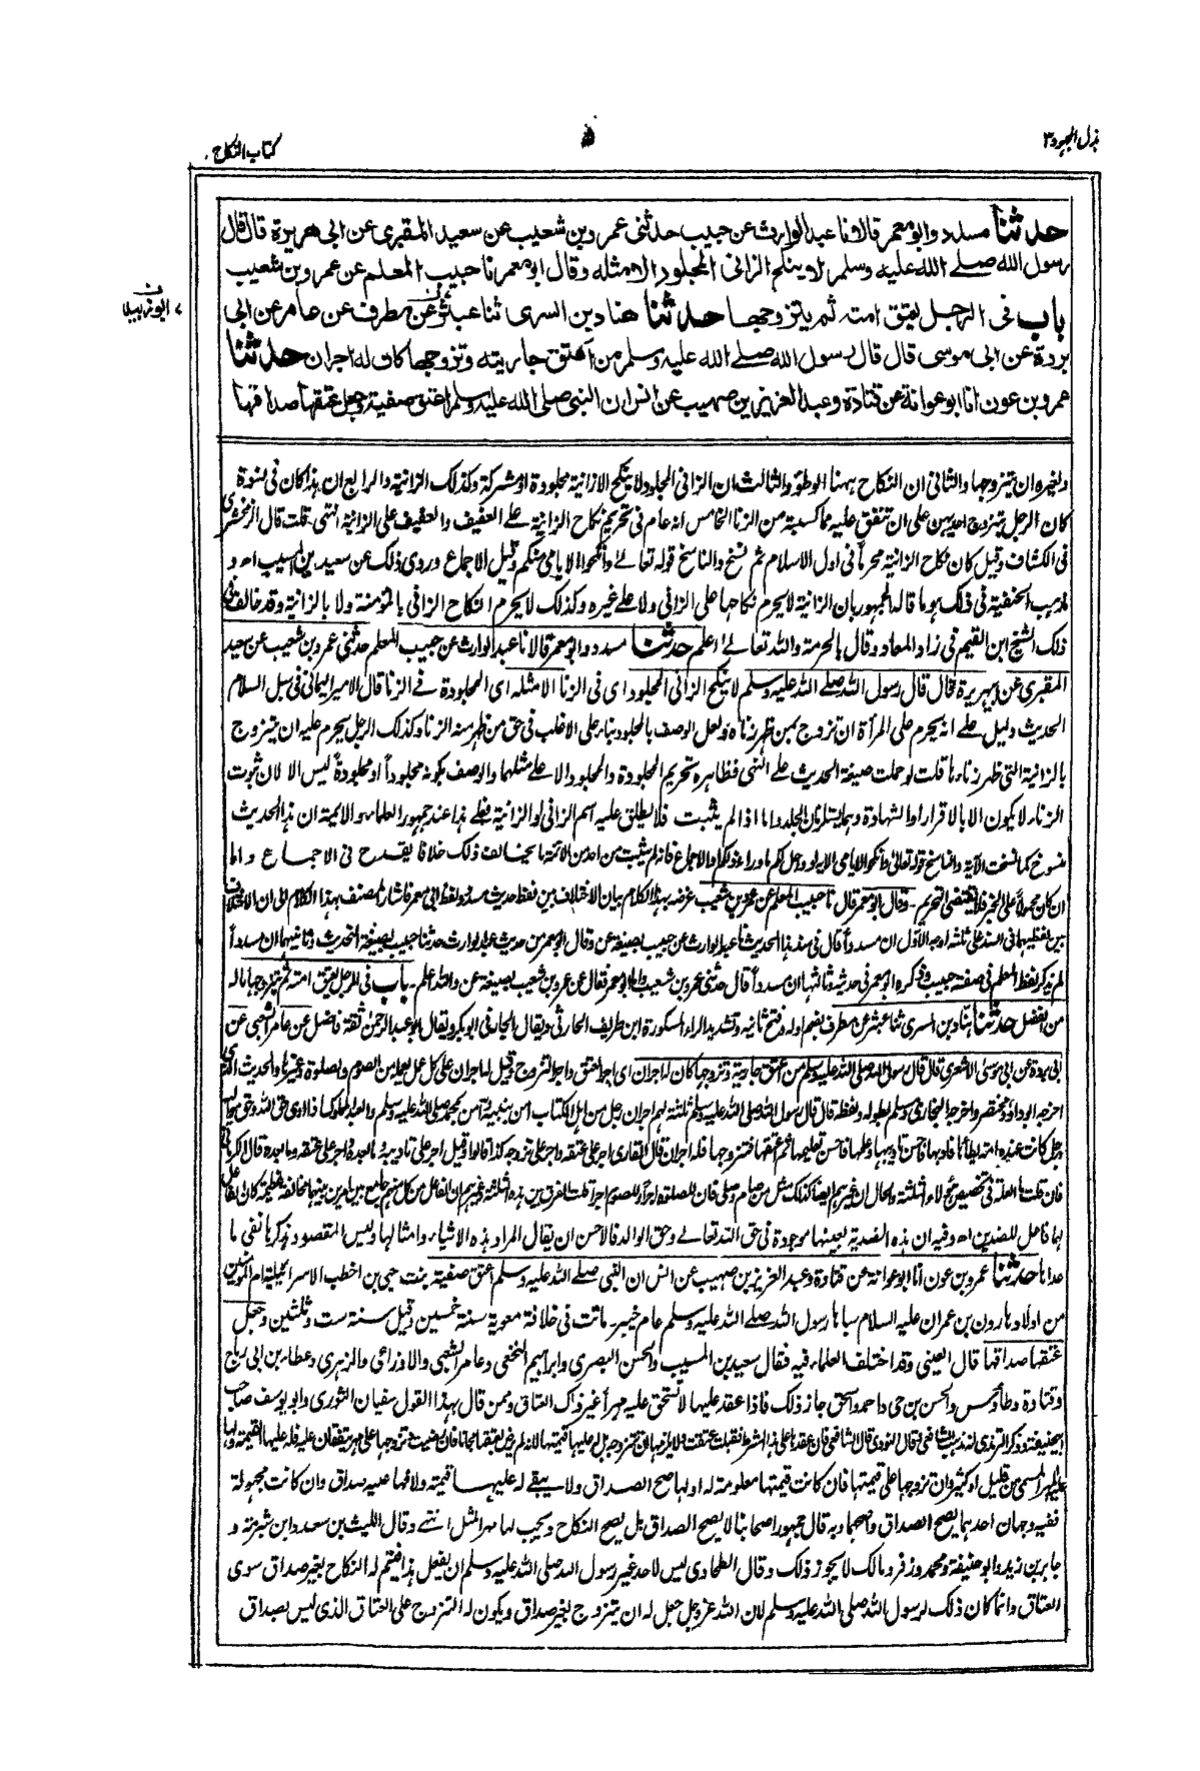 بذل المجهود ٣
٥
كتاب النكاح
حدثنا مسدد وابو معمر قالا نا عبد الوارث عن حبيب حدثنى عمرو بن شعيب عن سعيد المقبرى عن ابى هريرة قال قال
رسول الله صلى الله عليه وسلم لا ينكح الزانى المجلود الا مثله وقال ابو معمر نا حبيب المعلم عن عمرو بن شعيب
باب فى الرجل يعتق امته ثم يتزوجها حدثنا هناد بن السرى ثنا عبثر عن مطرف عن عامر عن ابى
بردة عن ابى موسى قال قال رسول الله صلى الله عليه وسلم من اعتق جاريته وتزوجها كان له اجران حدثنا
عمرو بن عون انا ابو عوانة عن قتادة وعبد العزيز بن صهيب عن انس ان النبى صلى الله عليه وسلم اعتق صفية وجعل عتقها صداقها
ولغيره ان يتزوجها والثانى ان النكاح ههنا الوطؤ والثالث ان الزانى المجلود لا ينكح الا زانية مجلودة او مشركة وكذلك الزانية والرابع ان هذا كان فى نسوة
كان الرجل يتزوج احديهن على ان تنفق عليه مما كسبته من الزنا الخامس انه عام فى تحريم نكاح الزانية على العفيف والعفيف على الزانية انتهى قلت قال الزمخشرى
فى الكشاف وقيل كان نكاح الزانية محرماً فى اول الاسلام ثم نسخ والناسخ قوله تعالى وانكحوا الايامى منكم وقيل الاجماع وروى ذلك عن سعيد بن المسيب اه و
مذهب الحنفية فى ذلك هو ما قاله الجمهور بان الزانية لا يحرم نكاحها على الزانى ولا على غيره وكذلك لا يحرم النكاح الزانى بالمؤمنة ولا بالزانية وقد خالف فى
ذلك الشيخ ابن القيم فى زاد المعاد وقال بالحرمة والله تعالى اعلم حدثنا مسدد وابو معمر قالا نا عبد الوارث عن حبيب المعلم حدثنى عمرو بن شعيب عن سعيد
المقبرى عن ابى هريرة قال قال رسول الله صلى الله عليه وسلم لا ينكح الزانى المجلود اى فى الزنا الا مثله اى المجلودة فى الزنا قال الامير اليمانى فى سبل السلام
الحديث دليل على انه يحرم على المرأة ان تزوج بمن ظهر زناه ولعل الوصف بالمجلود بناء على الاغلب فى حق من ظهر منه الزنا وكذلك الرجل يحرم عليه ان يتزوج
بالزانية التى ظهر زناءها قلت لو حملت صيغة الحديث على النهى فظاهره تحريم المجلودة والمجلود الا على مثلهما والوصف بكونه مجلوداً او مجلودة ليس الا لان ثبوت
الزناء لا يكون الا بالاقرار او الشهادة وهما يستلزمان الجلد واما اذا لم يثبت فلا يطلق عليه اسم الزانى او الزانية فعلى هذا عند جمهور العلماء والائمة ان هذا الحديث
منسوخ كما نسخت الآية والناسخ قوله تعالى وانكحوا الايامى الآية او واحل لكم ما وراء ذلكم والاجماع فانه لم يثبت من احد من الائمة ما يخالف ذلك خلافا يقدح فى الاجماع واما
ان كان محمولاً على الخبر فلا يقتضى التحريم - وقال ابو معمر قال نا حبيب المعلم عن عمرو بن شعيب غرضه بهذا الكلام بيان الاختلاف بين لفظ حديث مسدد ولفظ ابى معمر فاشار المصنف بهذا الكلام الى ان الاختلاف
بين لفظيهما فى السند على ثلثة اوجه الاول ان مسدداً قال فى سند هذا الحديث ثنا عبد الوارث عن حبيب بصيغة عن وقال ابو معمر من حديث عبد الوارث حدثنا حبيب بصيغة التحديث وثانيهما ان مسدداً
لم يذكر لفظ المعلم فى صفة حبيب وذكره ابو معمر فى حديثه وثالثها ان مسدداً قال حدثنى عمرو بن شعيب واما ابو معمر فقال عن عمرو بن شعيب بصيغة عن والله اعلم - باب فى الرجل يعتق امته ثم يتزوجها ماله
من الفضل حدثنا هناد بن السرى ثنا عبثر عن مطرف بضم اوله وفتح ثانيه وتشديد الراء المكسورة ابن طريف الحارثى ويقال الجارفى ابو بكر ويقال ابو عبد الرحمن ثقة فاضل عن عامر الشعبى عن
ابى بردة عن ابى موسى الاشعرى قال قال رسول الله صلى الله عليه وسلم من اعتق جاريته وتزوجها كان له اجران اى اجر العتق واجر التزوج وقيل له اجران على كل عمل يعمله من الصوم والصلوة وغيرها والحديث الذى
اخرجه ابو داؤد مختصر واخرجه البخارى ومسلم بطوله ولفظه قال قال رسول الله صلى الله عليه وسلم ثلثة لهم اجران رجل من اهل الكتاب آمن بنبيه وآمن بمحمد صلى الله عليه وسلم والعبد المملوك اذا ادى حق الله وحق مواليه
ورجل كانت عنده امة يطأها فادبها فاحسن تأديبها وعلمها فاحسن تعليمها ثم اعتقها فتزوجها فله اجران قال القارى اجر على عتقه واجر على تزوجه كذا قالوا وقيل اجر على تاديبه وما بعده واجر على عتقه وما بعده قال الكرمانى
فان قلت ما العلة فى تخصيص هؤلاء الثلثة والحال ان غيرهم ايضا كذلك مثل من صام وصلى فان للصلوة اجراً وللصوم اجراً قلت الفرق بين هذه الثلثة وغيرهم ان الفاعل من كل منهم جامع بين امرين بينهما مخالفة عظيمة كان الفاعل
لهما فاعل للضدين اه وفيه ان هذه الضدية بعينها موجودة فى حق الله تعالى وحق الوالد فالاحسن ان يقال المراد هذه الاشياء وامثالها وليس المقصود بذكرها نفى ما
عداها حدثنا عمرو بن عون انا ابو عوانة عن قتادة وعبد العزيز بن صهيب عن انس ان النبى صلى الله عليه وسلم اعتق صفية بنت حيى بن اخطب الاسرائيلية ام المؤمنين
من اولاد هارون بن عمران عليه السلام سباها رسول الله صلى الله عليه وسلم عام خيبر ماتت فى خلافة معوية سنة خمسين وقيل سنة ست وثلثين وجعل
عتقها صداقها قال العينى وقد اختلف العلماء فيه فقال سعيد بن المسيب والحسن البصرى وابراهيم النخعى وعامر الشعبى والاوزاعى والزهرى وعطاء بن ابى رباح
وقتادة وطاؤس والحسن بن حى واحمد واسحق جاز ذلك فاذا عقد عليها لا تستحق عليه مهراً غير ذاك العتاق وممن قال بهذا القول سفيان الثورى وابو يوسف صاحب
ابى حنيفة وذكر الترمذى انه مذهب الشافعى
المسمى من قليل او كثير وان تزوجها على قيمتها فان كانت قيمتها معلومة له او لها صح الصداق ولا يبقى له عليها قيمته ولا لها عليه صداق وان كانت مجهولة
ففيه وجهان احدهما يصح الصداق واصحهما وبه قال جمهور اصحابنا لا يصح الصداق بل يصح النكاح ويجب لها مهر المثل انتهى وقال الليث بن سعد وابن شبرمة و
جابر بن زيد وابو حنيفة ومحمد وزفر ومالك لا يجوز ذلك وقال الطحاوى ليس لاحد غير رسول الله صلى الله عليه وسلم ان يفعل هذا فيتم له النكاح بغير صداق سوى
العتاق وانما كان ذلك لرسول الله صلى الله عليه وسلم لان الله عز وجل جعل له ان يتزوج بغير صداق ويكون له التزوج على العتاق الذى ليس بصداق